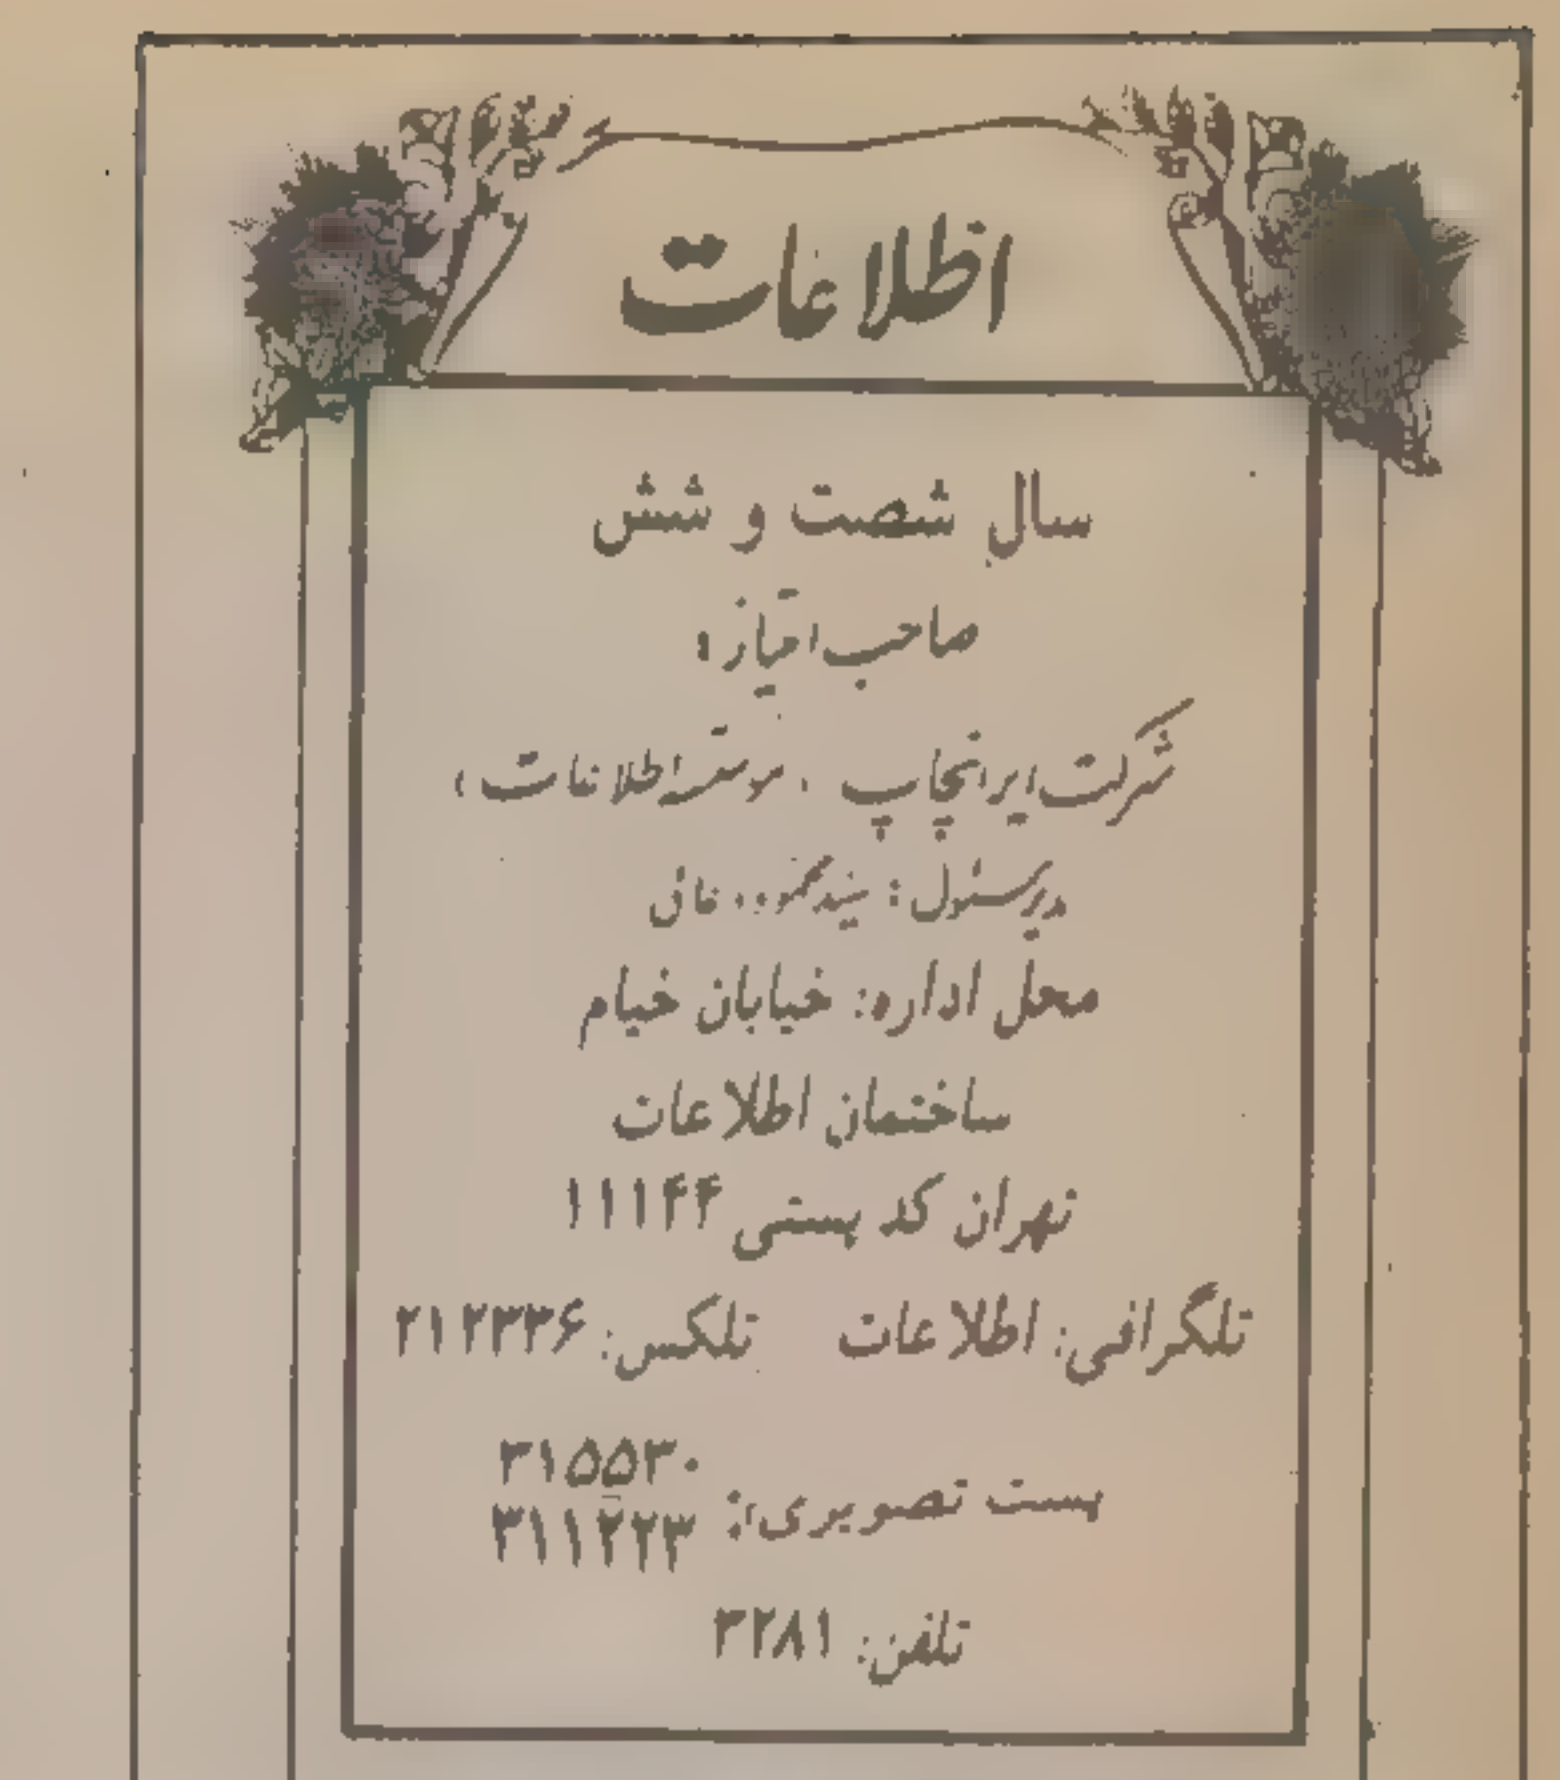 اطلاعات
سال شصت و شش
صاحب امتیاز:
شرکت ایرانچاپ (موسسه اطلاعات)
مدیر مسئول: سید محمود دعائی
محل اداره: خیابان خیام
ساختمان اطلاعات
تهران کد پستی ۱۱۱۴۴
تلگرافی: اطلاعات تلکس: ۲۱۲۳۳۶
پست تصویری: ۳۱۵۵۳۰
۳۱۱۲۲۳
تلفن: ۳۲۸۱